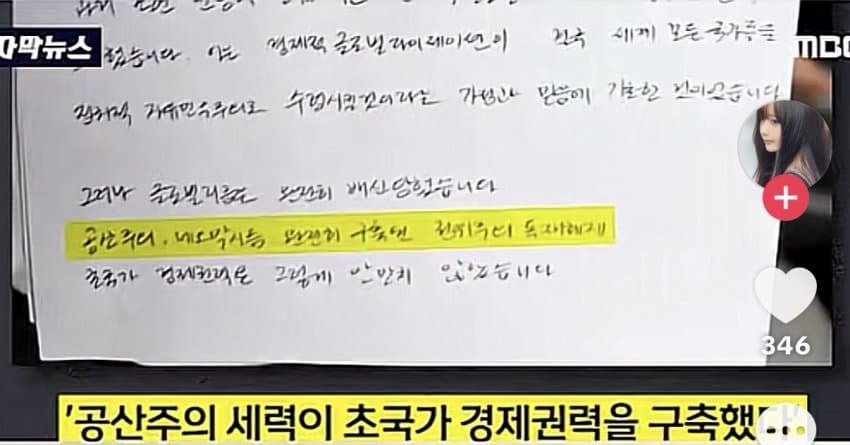 자막뉴스
MBC
했습니다. 이는 경제적 글로벌라이제이션이 전 세계 모든 국가들을
정치적 자유민주주의로 수렴시킬것이라는 가정과 믿음에 기초한 것이었습니다
그러나 글로벌리즘은 완전히 배신당했습니다
공산주의, 네오막시즘 완전히 구축된 전체주의 독재체제
초국가 경제권력은 그렇게 만만치 않았습니다
346
'공산주의 세력이 초국가 경제권력을 구축했다'